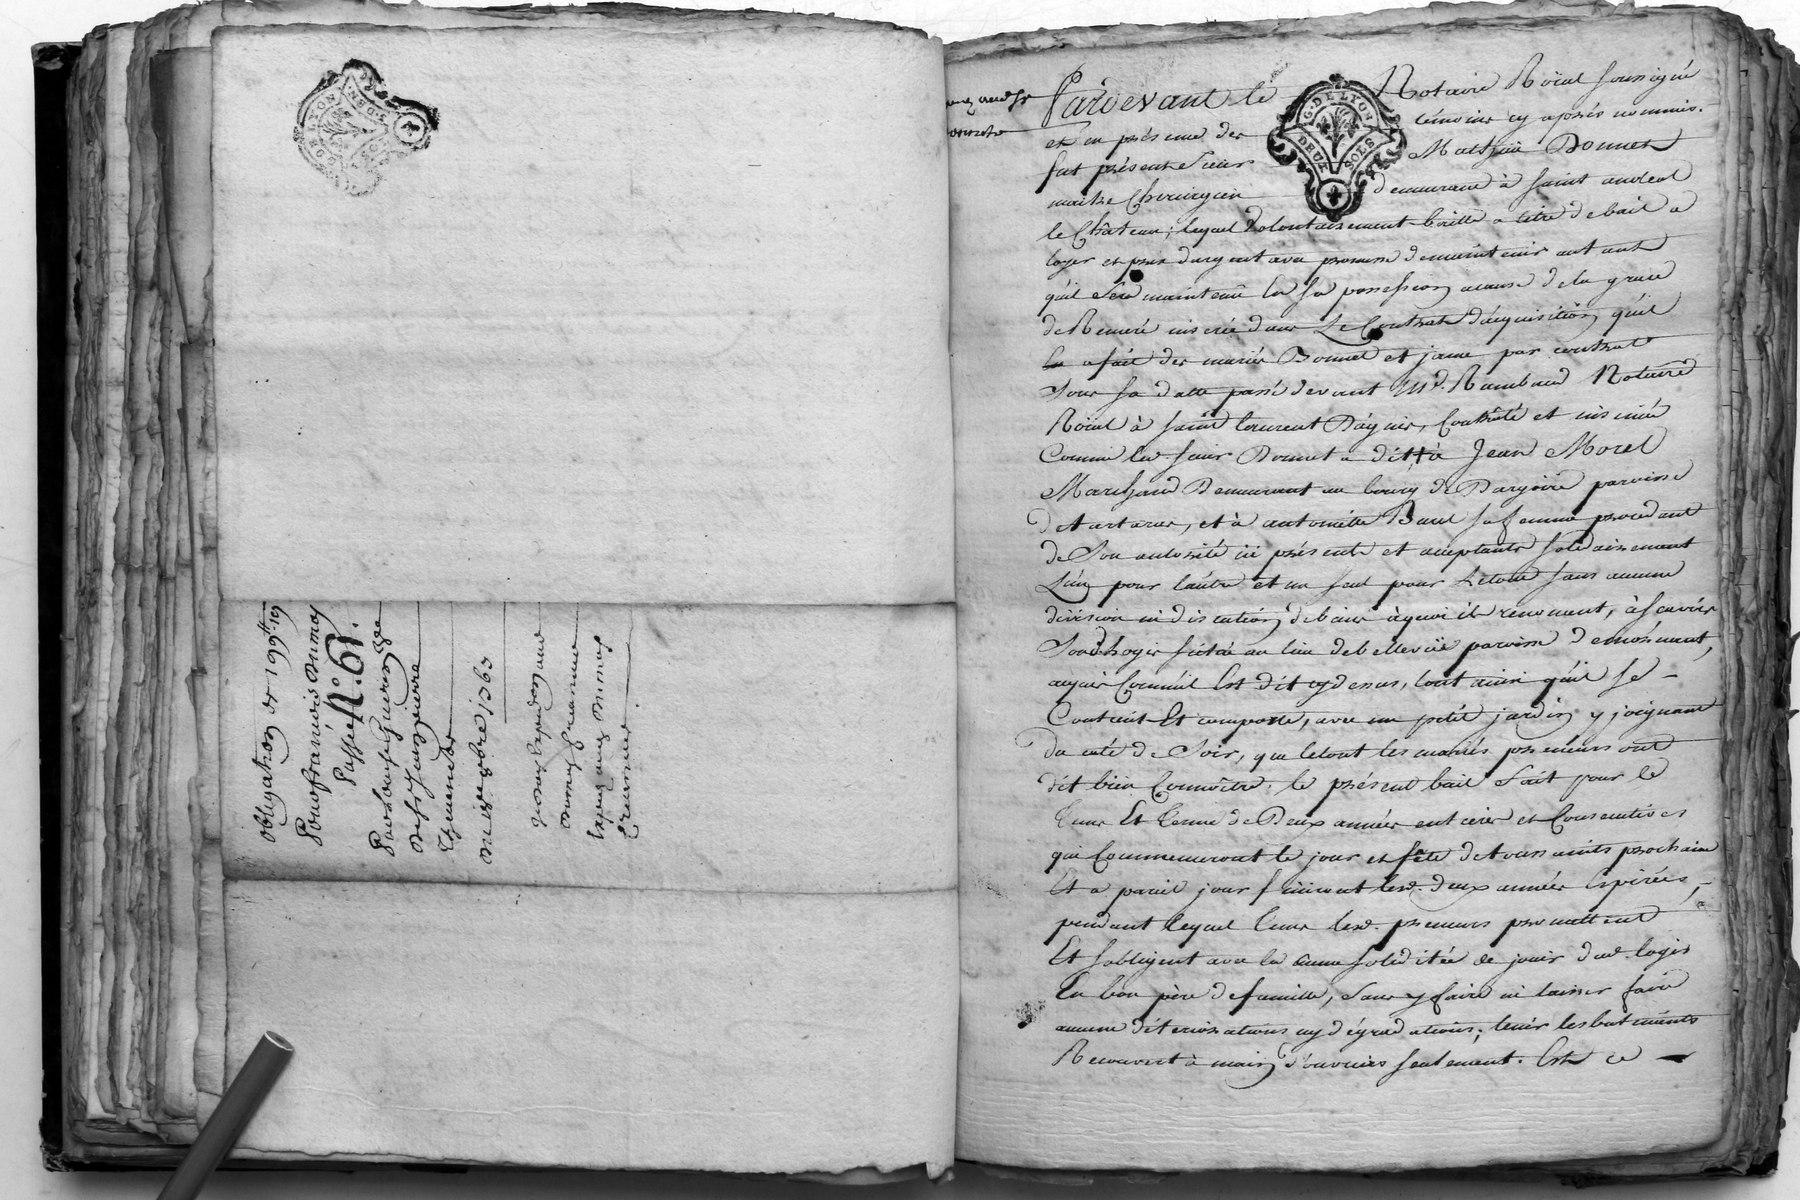 obligation de 199ᵗᵗ 19
Pour françois Dumas
Passée
N.º 61.
Par Louise Guerin
9bre 1763
G. DE LYON
DEUX SOLS
Pardevant le Notaire Roïal soussigné
et en présence des témoins cy après nommés.
fut présent Sieur Mathieu Donnet
maitre Chirurgien demeurant à saint andeol
le Château; lequel volontairement baille a titre de bail a
loyer et prix d'argent avec promesse de maintenir autant
quil sera maintenû en sa possession acause de la grace
de Remeré inserée dans Le Contrat d'acquisition qu'il
en a fait des mariés Donnet et jame par contrat
Sous sa datte passé devant Mᵉ. Rambaud Notaire
Roïal à saint Laurent Dagnis, Controlé et insinüé
Comme led. sieur Donnet a dit à Jean Morel
Marchand Demeurant au bourg de Dargoire paroisse
de tartaras, et à antoinette Barel sa femme procedant
de Son autorité ici présente et acceptants solidairement
L'ün pour l'autre et un seul pour Le tout sans aucune
division ni discution de biens àquoi ils renoncent, à scavoir
Son Logis situé au lieu de bellevüe paroisse de mornant,
acquis Comm'il Est dit cy dessus, tout ainsi qu'il se
Contient Et comporte, avec un petit jardin y joignant
du coté de Soir, que le tout les mariés preneurs ont
dit bien Connoitre. le présent bail Fait pour le
tems Et terme de Deux années entieres et Consecutives
qui Commenceront le jour et fête de toussaints prochain
Et a pareil jour finiront lesd. deux années Expirées,
pendant lequel tems lesd. preneurs promettent
Et s'obligent avec la même solidité de jouir dud. logis
En bon père de famille, sans y faire ni laisser faire
aucune déteriorations ny dégradations; tenir les batiments
Recouvert à main d'ouvriers seulement. Est ce